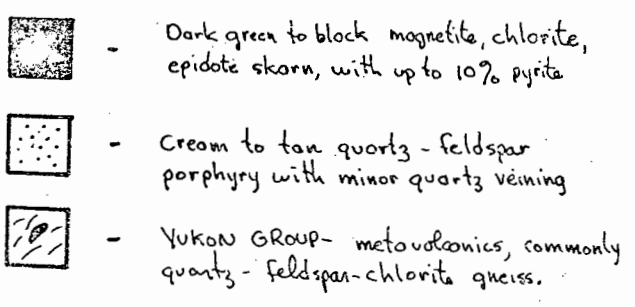 - Dark green to black magnetite, chlorite,
epidote skarn, with up to 10% pyrite
- Cream to tan quartz - feldspar
porphyry with minor quartz veining
- YUKON GROUP- metavolcanics, commonly
quartz - feldspar-chlorite gneiss.